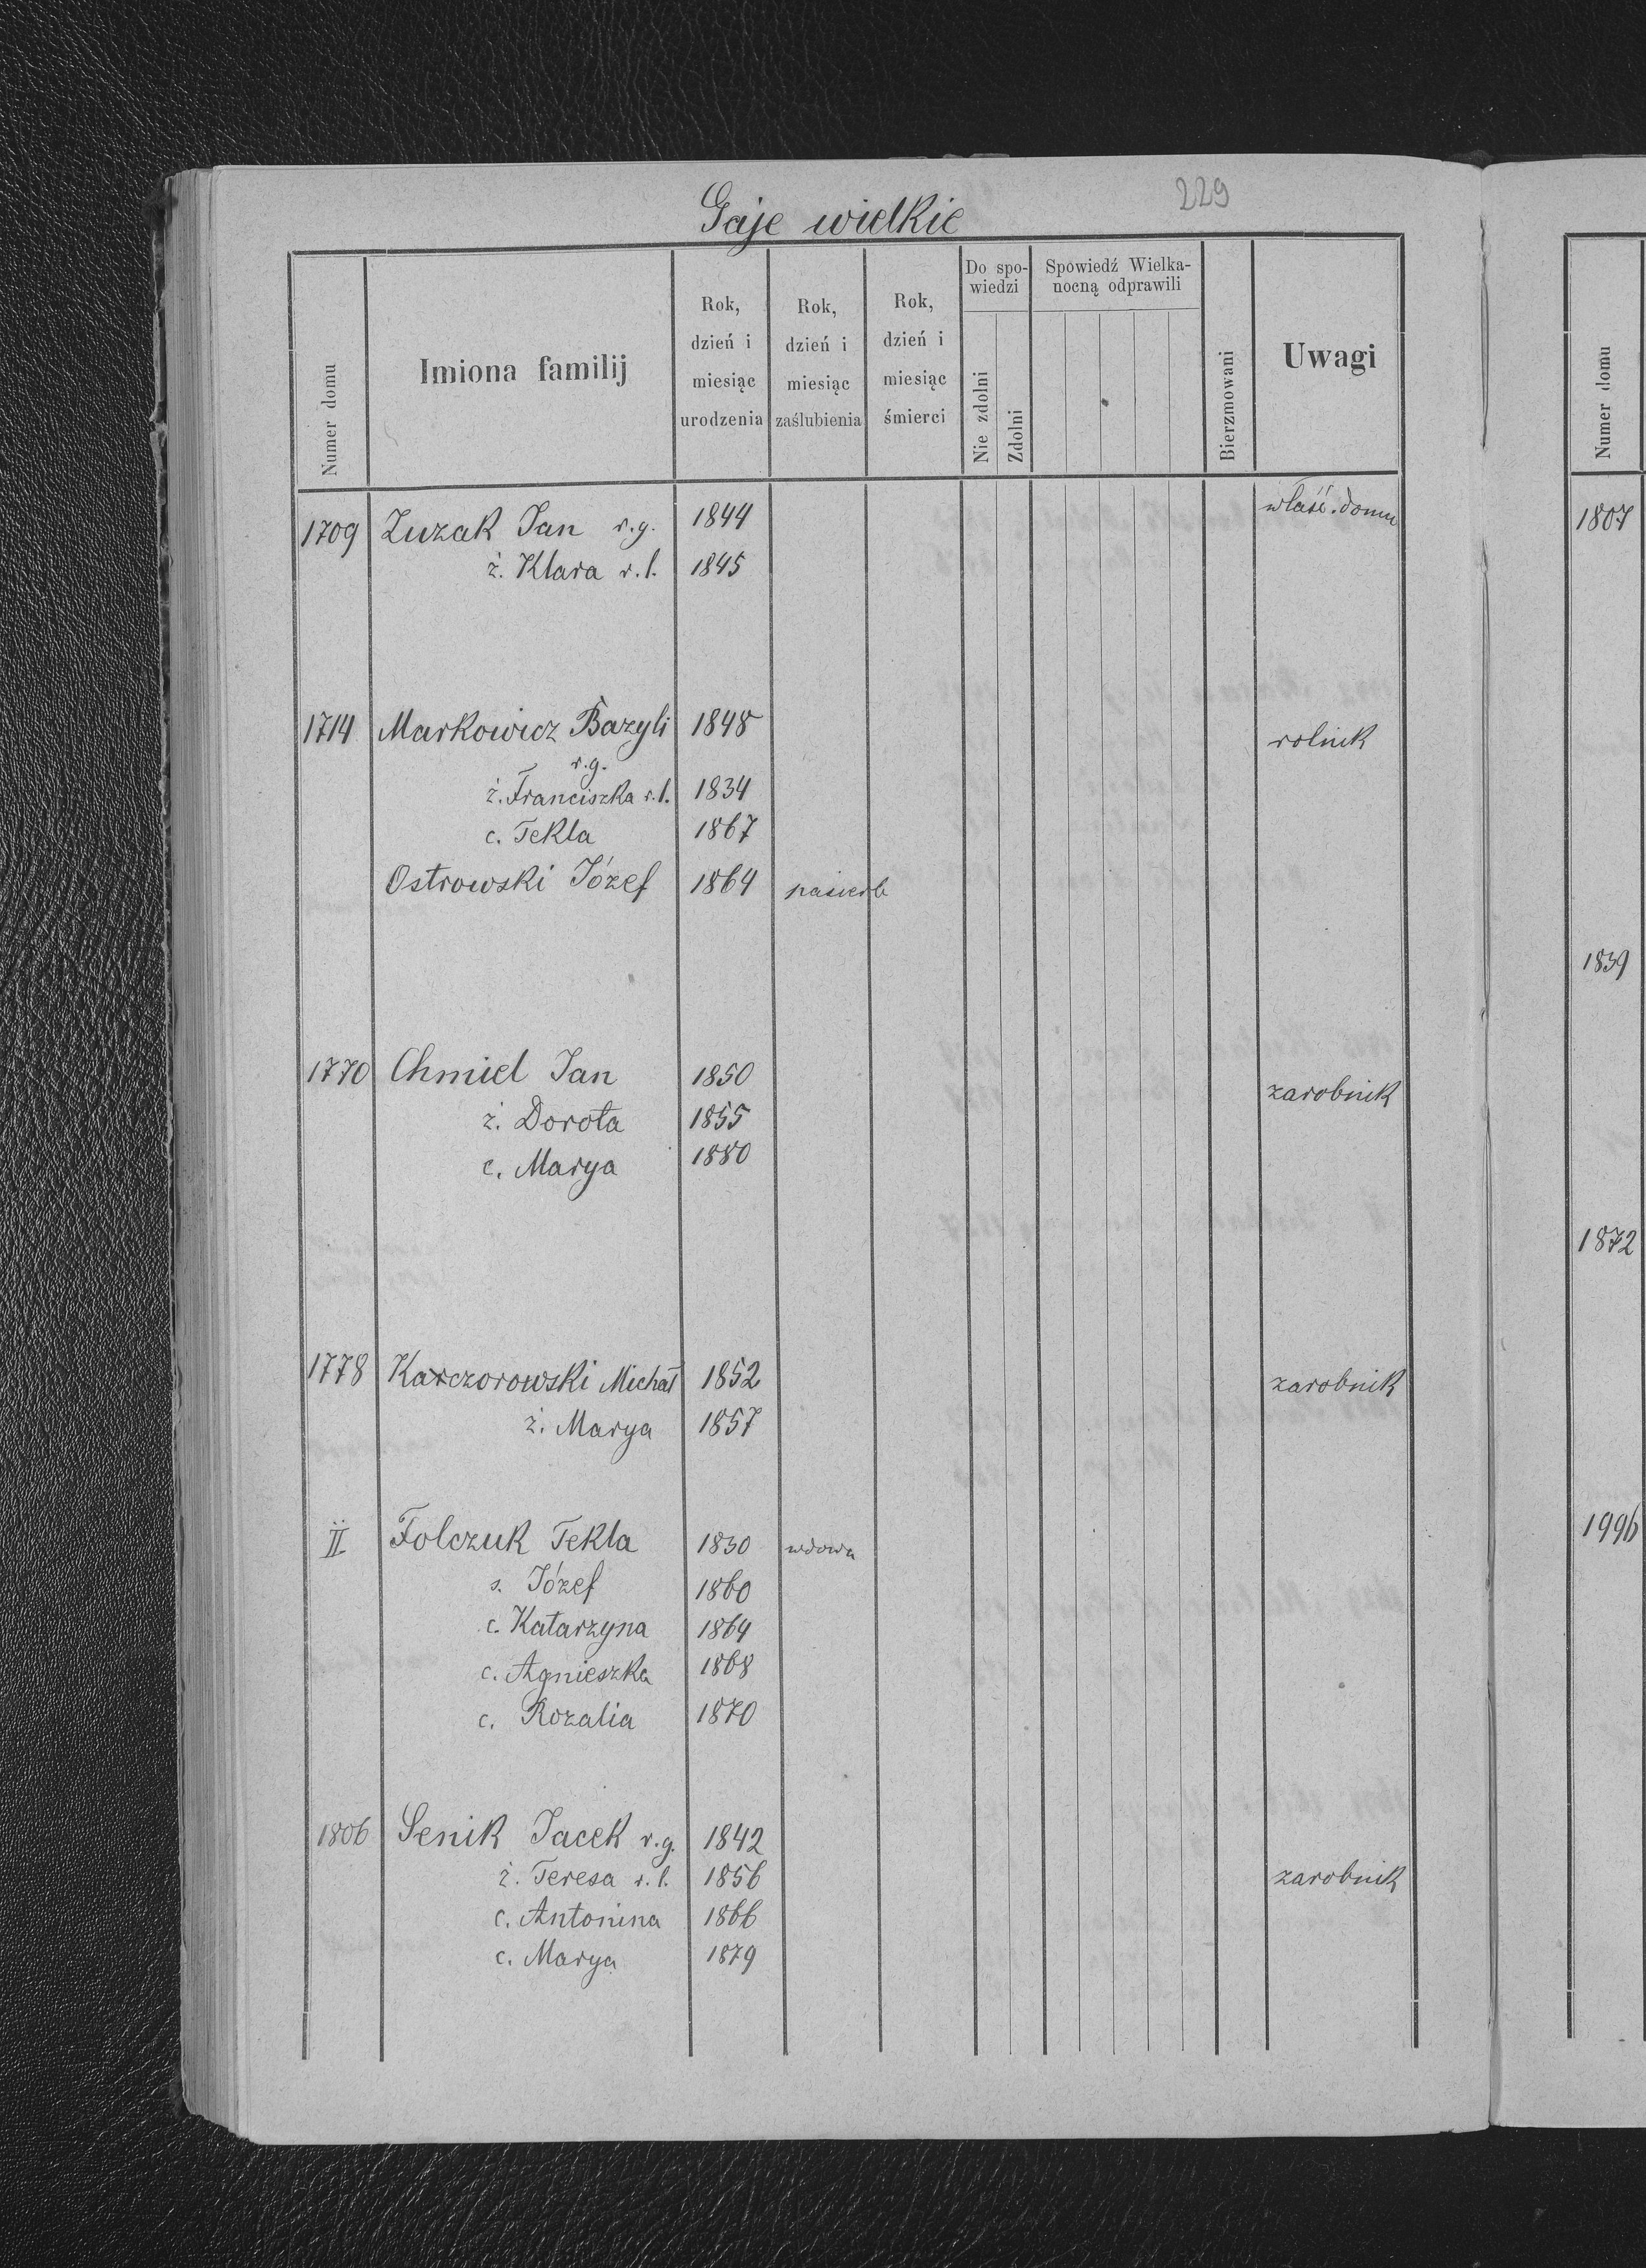 229
Gaje wielkie
Numer domu
Imiona familij
Rok, dzień i miesiąc urodzenia
Rok, dzień i miesiąc zaślubienia
Rok, dzień i miesiąc śmierci
Do spowiedzi
Nie zdolni
Zdolni
Spowiedź Wielkanocną odprawili
Bierzmowani
Uwagi
1709 Zuzak Jan r.g. 1844 właść. domu
ż. Klara r.l. 1845
1714 Markowicz Bazyli 1848 rolnik
r.g.
ż. Franciszka r.l. 1834
c. Tekla 1867
Ostrowski Józef 1864 pasierb
1770 Chmiel Jan 1850 zarobnik
ż. Dorota 1855
c. Marya 1880
1778 Karczorowski Michał 1852 zarobnik
ż. Marya 1857
II Folczuk Tekla 1830 wdowa
s. Józef 1860
c. Katarzyna 1864
c. Agnieszka 1868
c. Rozalia 1870
1806 Senik Jacek r.g. 1842
ż. Teresa r.l. 1856 zarobnik
c. Antonina 1866
c. Marya 1879
Numer domu
1807
1839
1872
1996